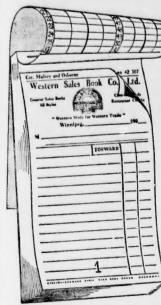 Cor. Mulvey and Osborne
Western Sales Book Co. Ltd.
Counter Sales Books
All Styles
"Western Made for Western Trade"
Winnipeg, 190
M
FORWARD
1